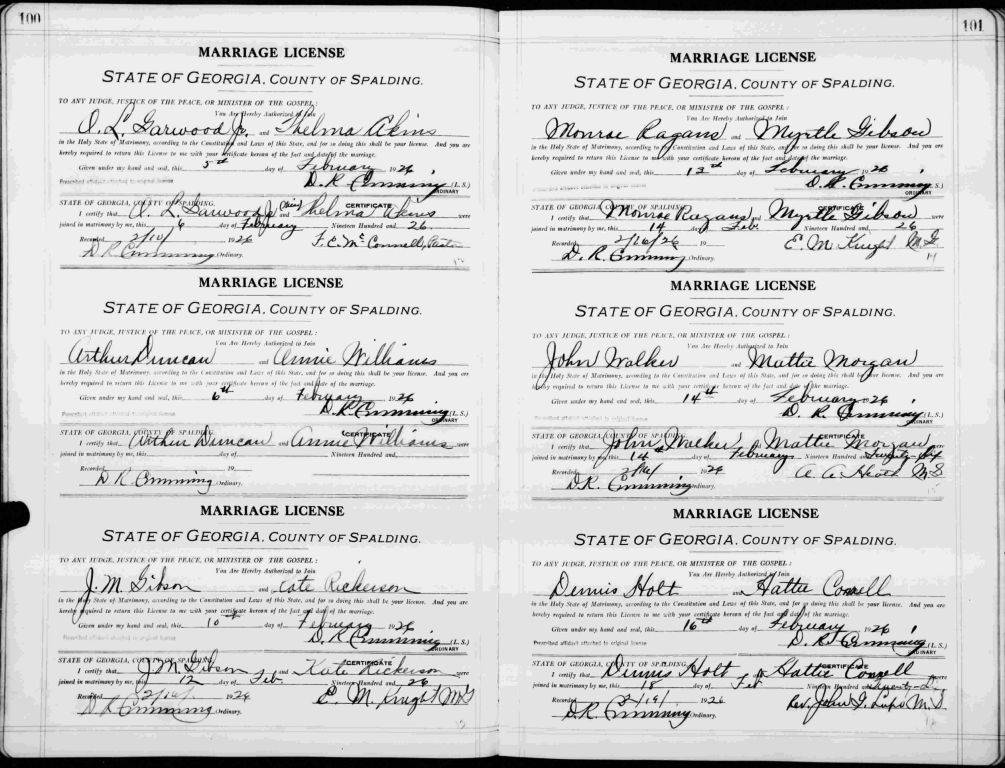 100
MARRIAGE LICENSE
STATE OF GEORGIA, COUNTY OF SPALDING.
TO ANY JUDGE, JUSTICE OF THE PEACE, OR MINISTER OF THE GOSPEL:
You Are Hereby Authorized to Join
O. L. Garwood Jr. and Thelma Akins
in the Holy State of Matrimony, according to the Constitution and Laws of this State, and for so doing this shall be your license. And you are
hereby required to return this License to me with your certificate hereon of the fact and date of the marriage.
Given under my hand and seal, this 5th day of February 1926
D. R. Cumming (L. S.)
Prescribed affidavit attached to original license
ORDINARY
CERTIFICATE
STATE OF GEORGIA, COUNTY OF SPALDING.
I certify that O. L. Garwood Jr and Thelma Akins were
joined in matrimony by me, this 6 day of February Nineteen Hundred and 26
Recorded 2/10/ 1926 F. C. McConnell, Pastor
D R Cumming Ordinary.
MARRIAGE LICENSE
STATE OF GEORGIA, COUNTY OF SPALDING.
TO ANY JUDGE, JUSTICE OF THE PEACE, OR MINISTER OF THE GOSPEL:
You Are Hereby Authorized to Join
Arthur Duncan and Annie Williams
in the Holy State of Matrimony, according to the Constitution and Laws of this State, and for so doing this shall be your license. And you are
hereby required to return this License to me with your certificate hereon of the fact and date of the marriage.
Given under my hand and seal, this 6th day of February 1926
D. R. Cumming (L. S.)
Prescribed affidavit attached to original license
ORDINARY
CERTIFICATE
STATE OF GEORGIA, COUNTY OF SPALDING.
I certify that Arthur Duncan and Annie Williams were
joined in matrimony by me, this day of Nineteen Hundred and
Recorded 19
D R Cumming Ordinary.
MARRIAGE LICENSE
STATE OF GEORGIA, COUNTY OF SPALDING.
TO ANY JUDGE, JUSTICE OF THE PEACE, OR MINISTER OF THE GOSPEL:
You Are Hereby Authorized to Join
J. M. Gibson and Cate Rickerson
in the Holy State of Matrimony, according to the Constitution and Laws of this State, and for so doing this shall be your license. And you are
hereby required to return this License to me with your certificate hereon of the fact and date of the marriage.
Given under my hand and seal, this 10th day of February 1926
D. R Cumming (L. S.)
Prescribed affidavit attached to original license
ORDINARY
CERTIFICATE
STATE OF GEORGIA, COUNTY OF SPALDING.
I certify that J. M. Gibson and Kate Rickerson were
joined in matrimony by me, this 12 day of Feb. Nineteen Hundred and 26
Recorded 1926 E. M. Knight M G
D R Cumming Ordinary.
101
MARRIAGE LICENSE
STATE OF GEORGIA, COUNTY OF SPALDING.
TO ANY JUDGE, JUSTICE OF THE PEACE, OR MINISTER OF THE GOSPEL:
You Are Hereby Authorized to Join
Monroe Ragans and Myrtle Gibson
in the Holy State of Matrimony, according to the Constitution and Laws of this State, and for so doing this shall be your license. And you are
hereby required to return this License to me with your certificate hereon of the fact and date of the marriage.
Given under my hand and seal, this 13th day of February 1926
D. R. Cumming (L. S.)
Prescribed affidavit attached to original license
ORDINARY
CERTIFICATE
STATE OF GEORGIA, COUNTY OF SPALDING.
I certify that Monroe Ragans and Myrtle Gibson were
joined in matrimony by me, this 14 day of Feb. Nineteen Hundred and 26
Recorded 2/16/26 19 E. M. Knight M. G.
D. R. Cumming Ordinary.
14
MARRIAGE LICENSE
STATE OF GEORGIA, COUNTY OF SPALDING.
TO ANY JUDGE, JUSTICE OF THE PEACE, OR MINISTER OF THE GOSPEL:
You Are Hereby Authorized to Join
John Walker and Mattie Morgan
in the Holy State of Matrimony, according to the Constitution and Laws of this State, and for so doing this shall be your license. And you are
hereby required to return this License to me with your certificate hereon of the fact and date of the marriage.
Given under my hand and seal, this 14th day of February 1926
D. R Cumming (L. S.)
Prescribed affidavit attached to original license
ORDINARY
CERTIFICATE
STATE OF GEORGIA, COUNTY OF SPALDING.
I certify that John Walker and Mattie Morgan were
joined in matrimony by me, this 14th day of February Nineteen Hundred and Twenty-Six
Recorded 2/16/ 1926 A. A. M. G
D. R. Cumming Ordinary.
15
MARRIAGE LICENSE
STATE OF GEORGIA, COUNTY OF SPALDING.
TO ANY JUDGE, JUSTICE OF THE PEACE, OR MINISTER OF THE GOSPEL:
You Are Hereby Authorized to Join
Dennis Holt and Hattie Connell
in the Holy State of Matrimony, according to the Constitution and Laws of this State, and for so doing this shall be your license. And you are
hereby required to return this License to me with your certificate hereon of the fact and date of the marriage.
Given under my hand and seal, this 16th day of February 1926
D. R Cumming (L. S.)
Prescribed affidavit attached to original license
ORDINARY
CERTIFICATE
STATE OF GEORGIA, COUNTY OF SPALDING.
I certify that Dennis Holt and Hattie Connell were
joined in matrimony by me, this 18 day of Feb. Nineteen Hundred and
Recorded 1926 Rev. John G. Lupo M. G.
D. R. Cumming Ordinary.